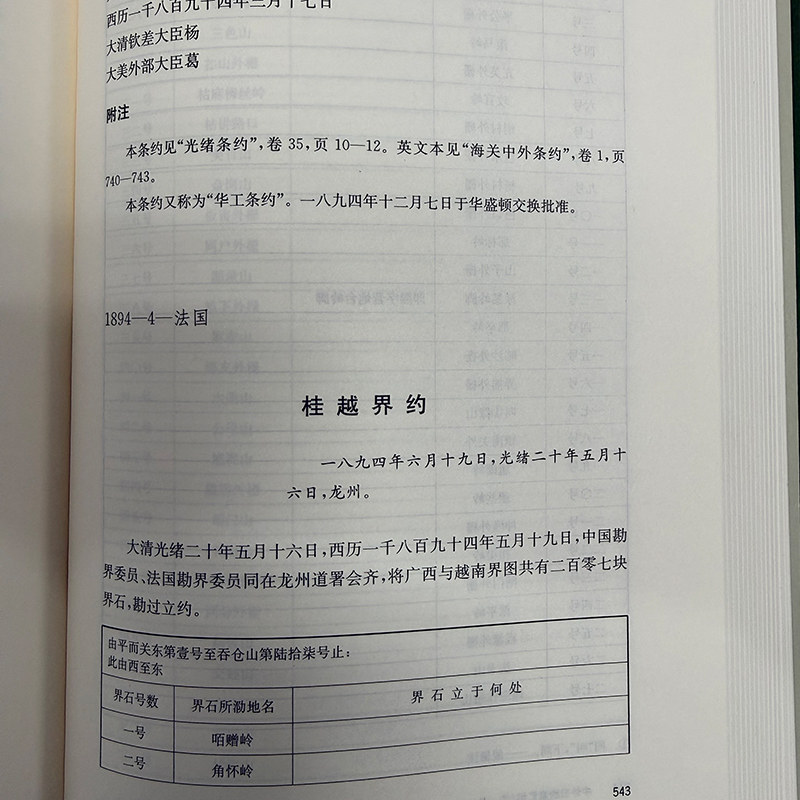 西历一千八百九十四年三月十七日
大清钦差大臣杨
大美外部大臣葛
附注
本条约见“光绪条约”，卷 35，页 10—12。英文本见“海关中外条约”，卷 1，页
740—743。
本条约又称为“华工条约”。一八九四年十二月七日于华盛顿交换批准。
1894—4—法国
桂越界约
一八九四年六月十九日，光绪二十年五月十
六日，龙州。
大清光绪二十年五月十六日，西历一千八百九十四年五月十九日，中国勘
界委员、法国勘界委员同在龙州道署会齐，将广西与越南界图共有二百零七块
界石，勘过立约。
由平而关东第壹号至吞仓山第陆拾柒号止：
此由西至东
界石号数 界石所泐地名 界石立于何处
一号 咟赠岭
二号 角怀岭
543